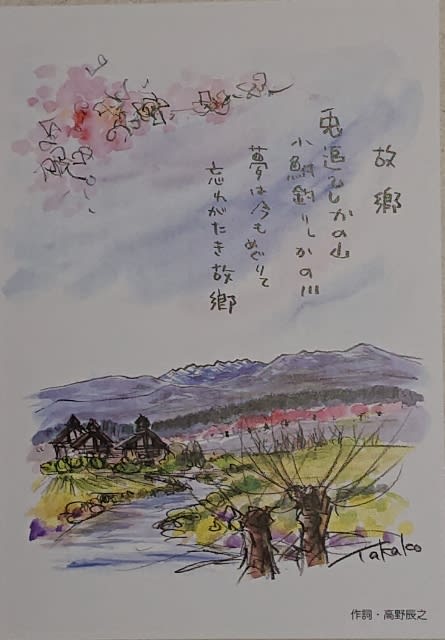 故郷
兎追いしかの山
小鮒釣りしかの川
夢は今もめぐりて
忘れがたき故郷
Takako
作詞・高野辰之